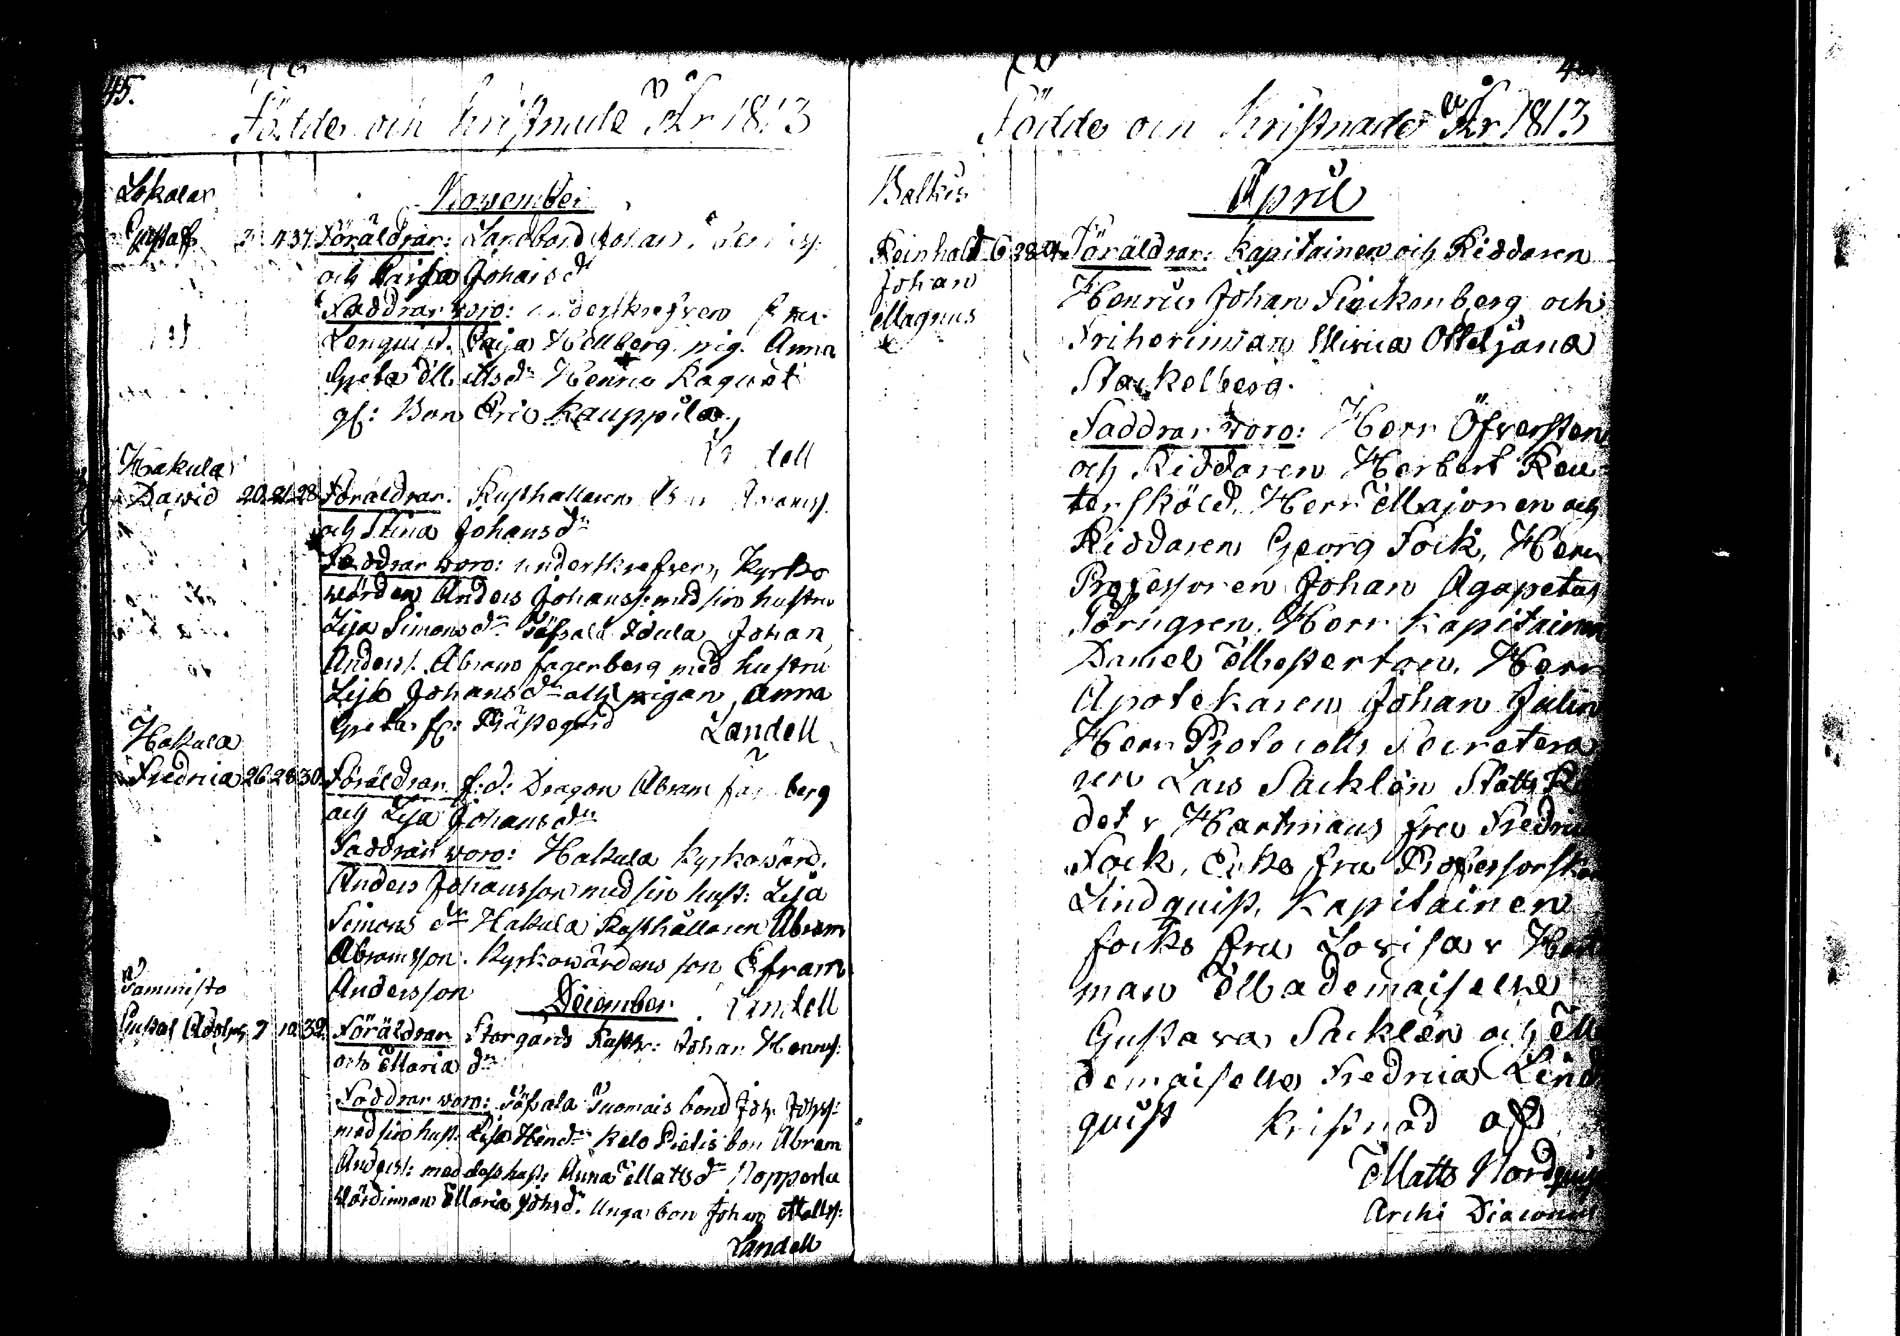 45.
Födde och Kristnade År 1813
Lokalax
November
Gustaf 3 4 37 Föräldrar: Landbond Johan
och Caisa Johansdr
Faddrar woro: underskrefven fru
Lenquist. Caija Hellberg. pig. Anna
Greta Mattsdr Henric Raqvist
gf: Bon Eric Kauppila
Hakula
Dawid 20 21 28 Föräldrar. Rusthallaren Abramss.
och Stina Johansdr
Faddrar woro: underskrefven, Kyrko
wärden Anders Johanss: med sin hustru
Lisa Simonsdr Töfsala Johan
Anderss. Abram fagerberg med hustru
Lisa Johansdr och pigan Anna
Greta fr: Prästegård Landell
Hakula
Fredrica 26 28 30 Föräldrar f:d: Dragon Abram fagerberg
och Lisa Johansdr
Faddrar woro: Hakula Kyrkowärd.
Anders Johansson med sin hust: Lisa
Simonsdr Hakula Rusthållaren Abram
Abramsson. Kyrkowärdens son Efram
Andersson Landell
December
Tammisto
Gustaf Adolph 7 10 32 Föräldrar Storgårds Rusth: Johan Henrs:
och Maria dr
Faddrar woro: Töfsala Tuomais bond Joh. Johss:
med sin hust. Lisa Hendr Kelo Pietis bon Abram
Anderss: med dess hust: Anna Mattsdr Nopperla
Wärdinnan Maria Johsdr. Unga bon Johan Matss:
Landell
Födde och Kristnade År 1813
Balkis
April
Reinhold 6 28 Föräldrar: Kapitainen och Riddaren
Johan
Magnus
Henric Johan Fieckenberg och
Friherinnan Ulrica Ottiljana
Stackelberg.
Faddrar woro: Herr Öfversten
och Riddaren Herbert Reu-
terskòld. Herr Majoren och
Riddaren Georg Fock, Herr
Professoren Johan Agapetus
Törngren. Herr Kapitainen
Daniel Masterton. Herr
Apotekaren Johan Julin
Herr Protocolls Secretera
ren Lars Sacklèn Statts Rå
det v Hartmans fru Fredrica
Fock, Enke fru Professorskan
Lindquist, Kapitainen
focks fru Lovisa v Hart
man Mademaiselle
Gustava Sacklèn och Ma
demaiselle Fredrica Lind
quist Kristnad af
Matts Nordquist
Archi Diaconus